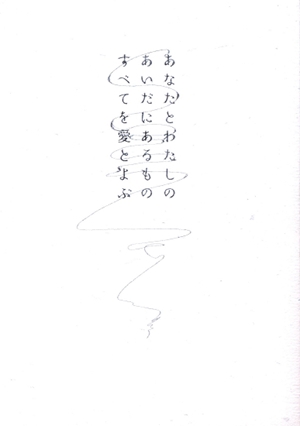 あなたとわたしの
あいだにあるもの
すべてを愛とよぶ